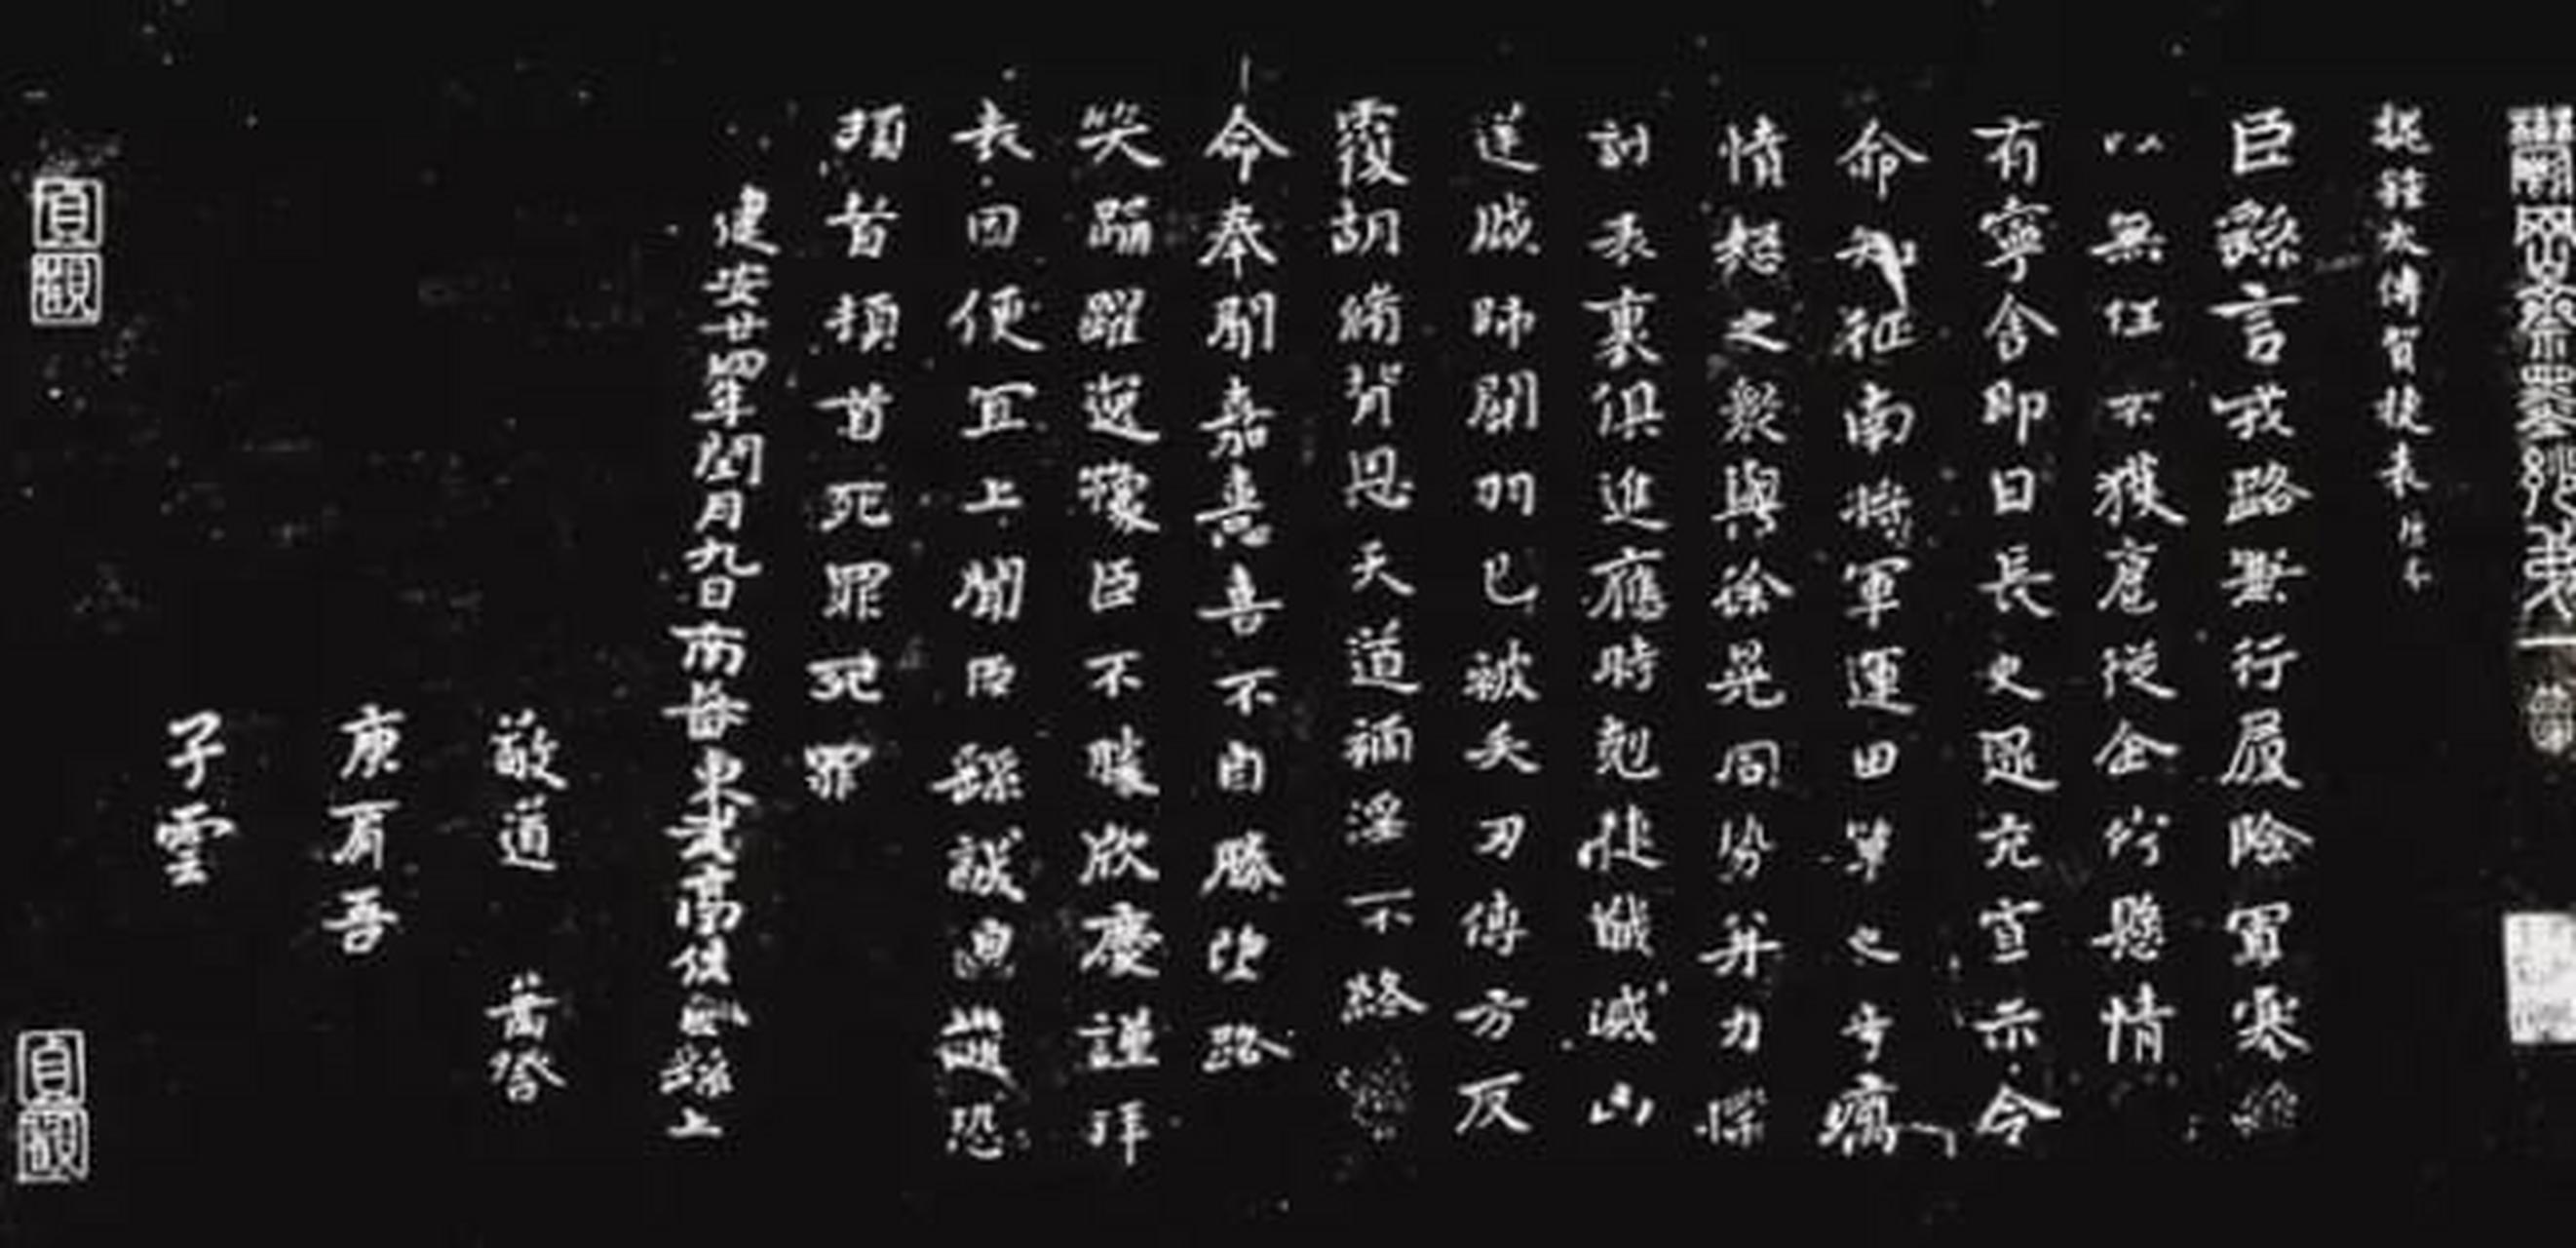 鬱岡齋墨妙
魏鍾太傅賀捷表 唐本
臣繇言戎路兼行履險冒寒
以無任不獲扈從企佇懸情
有寧舍即日長史逯充宣示令
命知征南將軍運田單之奇厲
憤怒之衆與徐晃同勢并力撲
討表裏俱進應時剋捷馘滅凶
逆賊帥關羽已被矢刃傅方反
覆胡脩背恩天道禍淫不終
命奉聞嘉憙喜不自勝望路
笑踊躍逸豫臣不勝欣慶謹拜
表因便宜上聞臣繇誠惶誠恐
頓首頓首死罪死罪
建安廿四年閏月九日南蕃東武亭侯臣繇上
敬道
庾肩吾
子雲
貞觀
貞觀